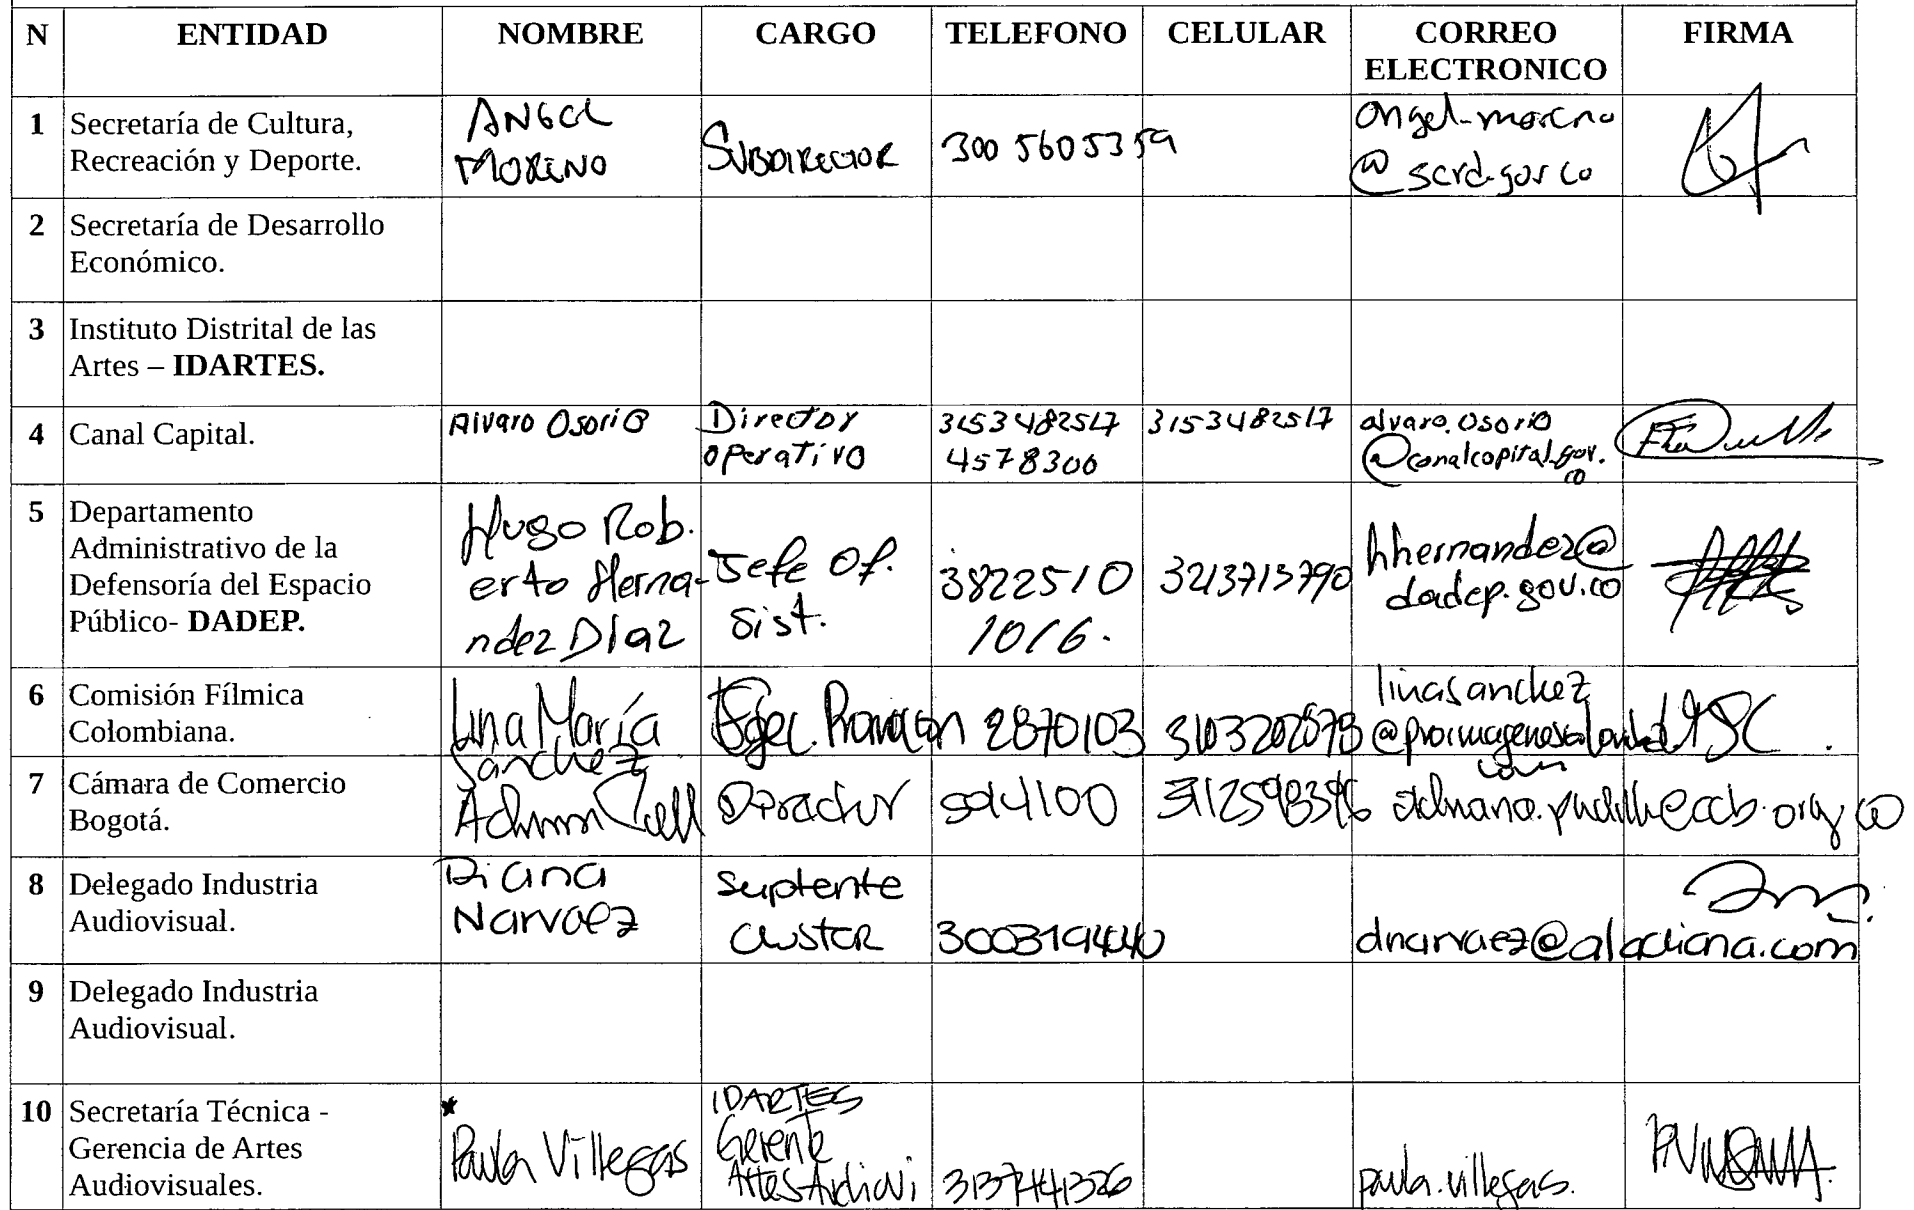 N ENTIDAD NOMBRE CARGO TELEFONO CELULAR CORREO ELECTRONICO FIRMA
1 Secretaría de Cultura, Recreación y Deporte.
ANGEL MORENO
SUBDIRECTOR
300 5605359
angel.moreno
@scrd.gov.co
2 Secretaría de Desarrollo Económico.
3 Instituto Distrital de las Artes – IDARTES.
4 Canal Capital.
Alvaro Osorio
Director operativo
3153482517
4578300
3153482517
alvaro.osorio
@canalcapital.gov.
co
5 Departamento Administrativo de la Defensoría del Espacio Público- DADEP.
Hugo Rob.
erto Herna-
ndez Díaz
Jefe Of.
Sist.
3822510
1016.
3213715790
hhernandez@
dadep.gov.co
6 Comisión Fílmica Colombiana.
Lina María
Sánchez
2870103
linasanchez
7 Cámara de Comercio Bogotá.
Director
8 Delegado Industria Audiovisual.
Diana
Narvaez
Suplente
Cluster
3003194440
dnarvaez@aladiana.com
9 Delegado Industria Audiovisual.
10 Secretaría Técnica - Gerencia de Artes Audiovisuales.
*
Paula Villegas
IDARTES
Gerente
3137441326
paula.villegas.